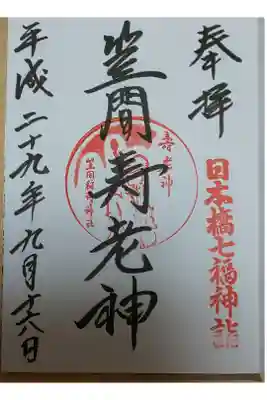 奉拝
日本橋七福神詣
笠間寿老神
寿老神
笠間稲荷神社
平成二十九年九月十六日